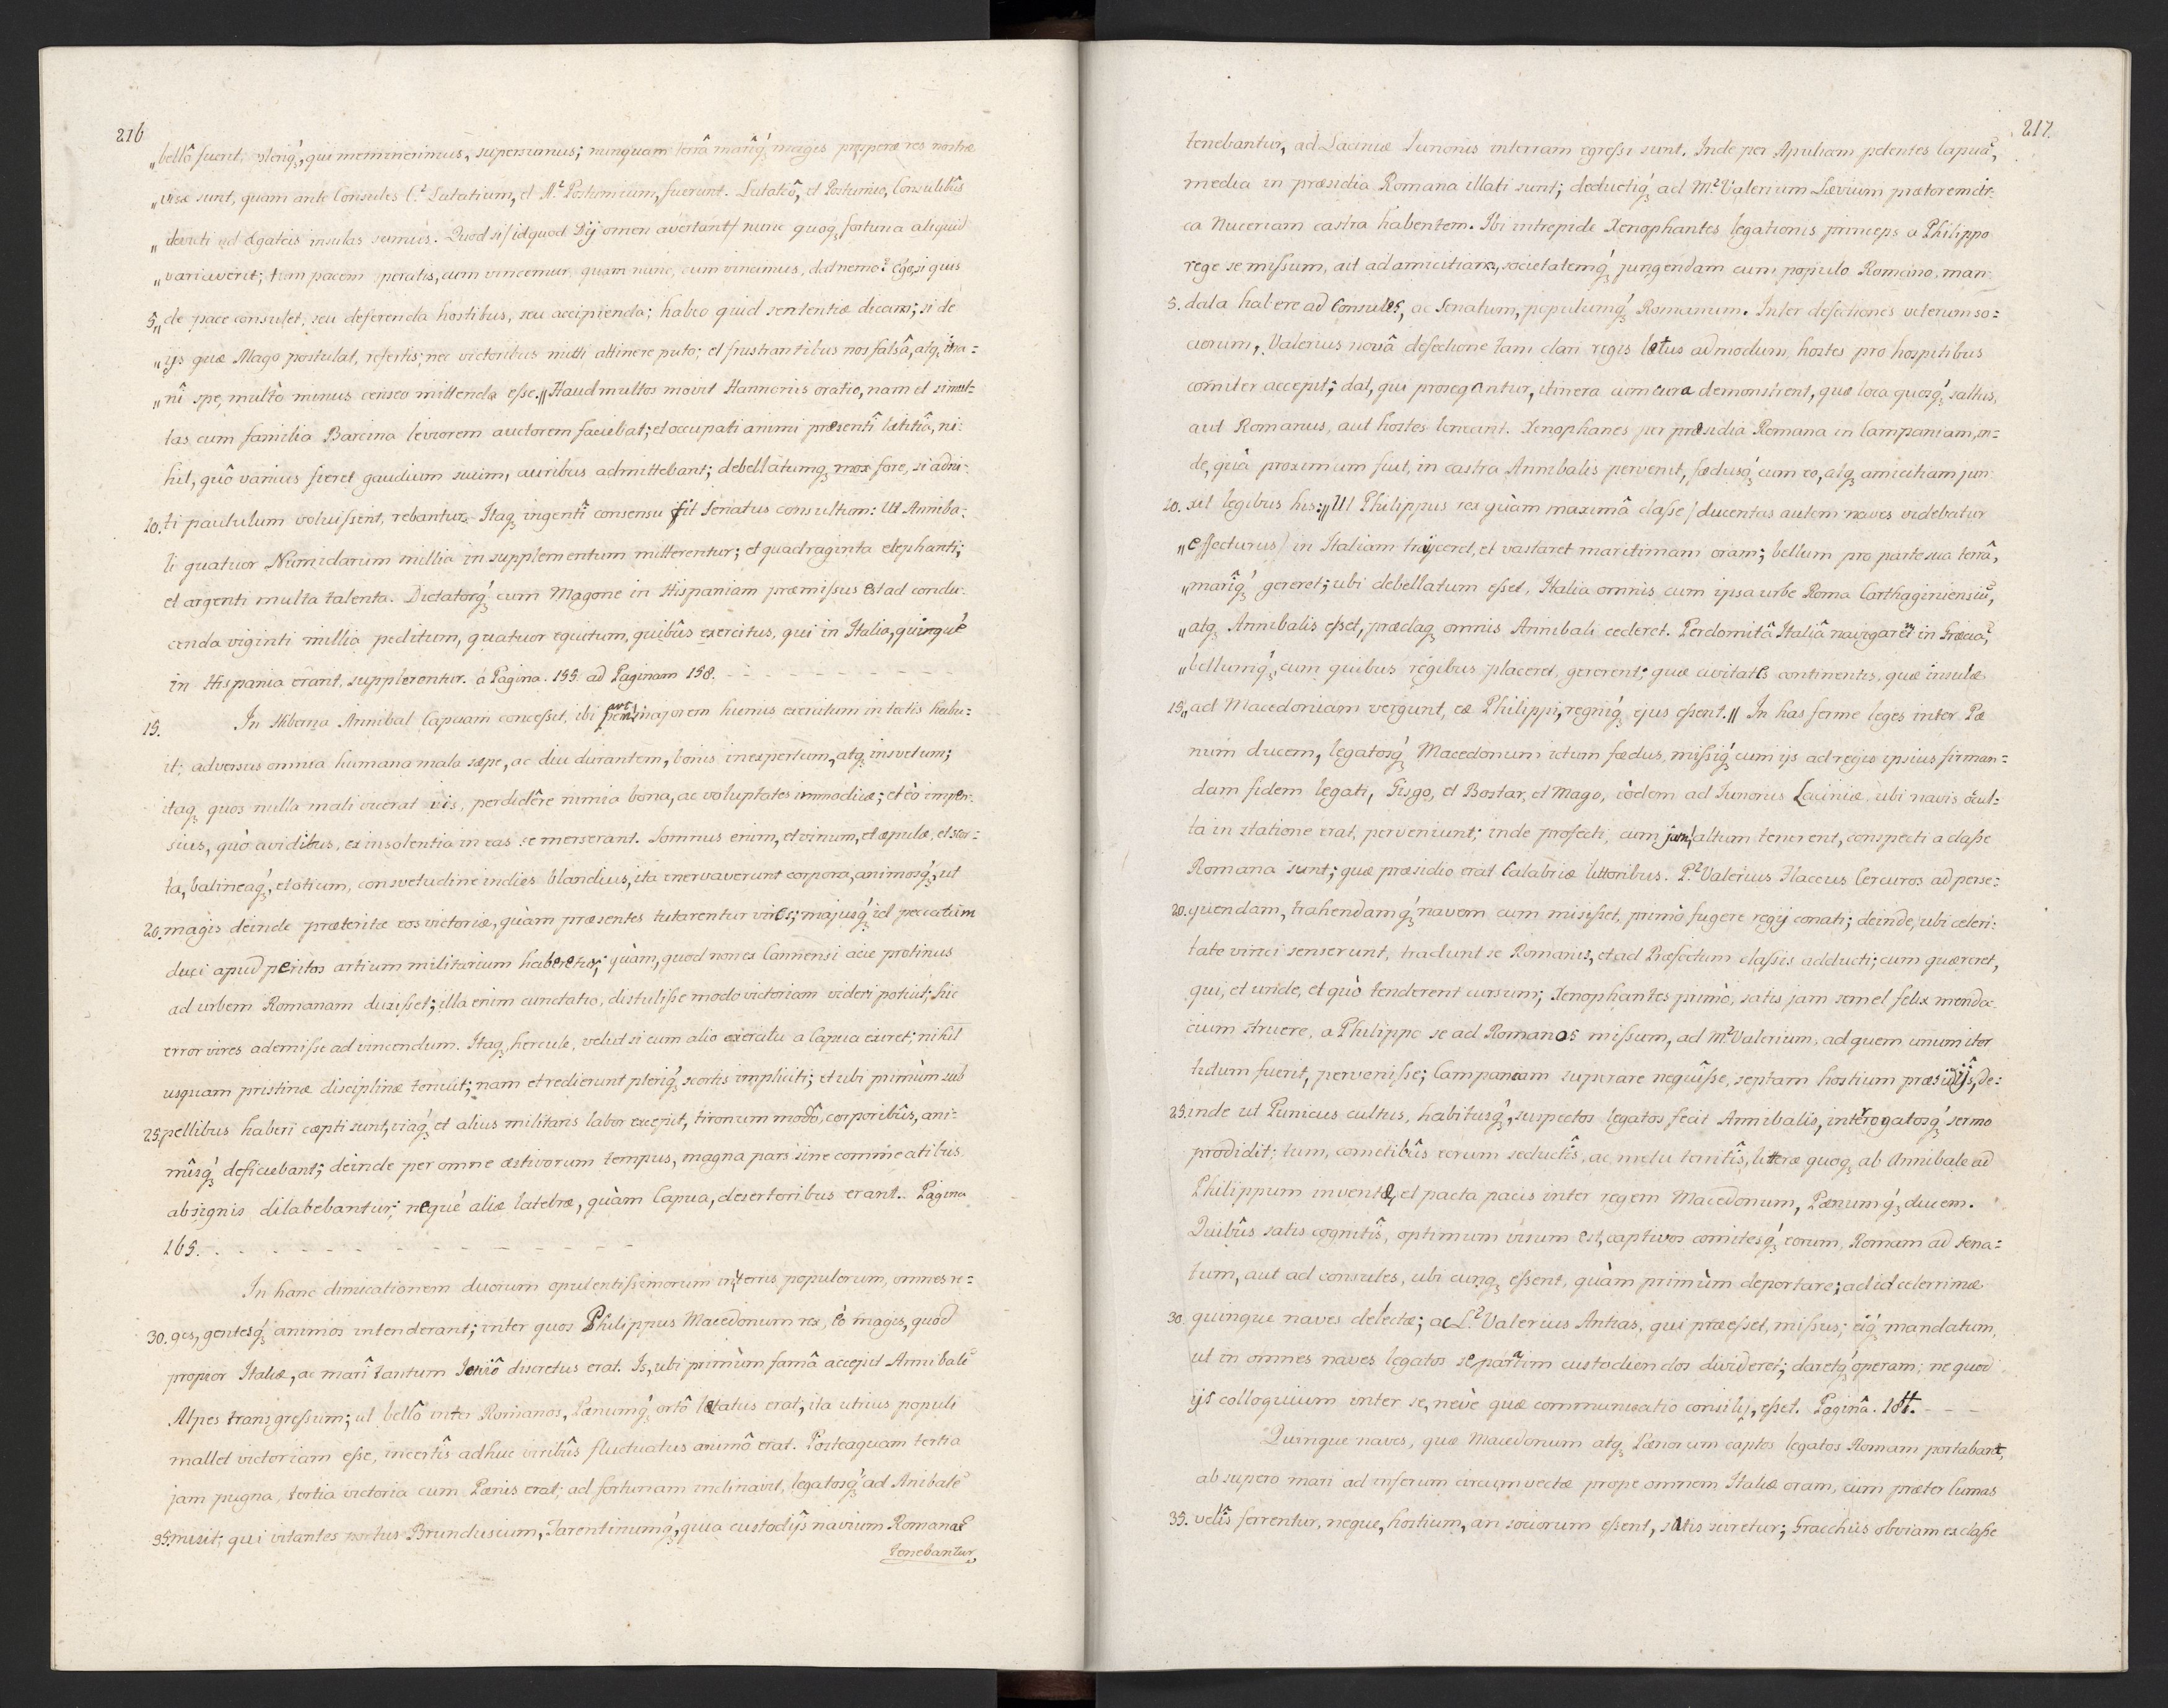 216
„bellô fuerit, pleriq́ꝫ, qui meminerimus, supersumus; nunquam terrâ marîq́ꝫ magis prosperæ res nostræ
„visæ sunt, quam ante Consules C.² Lutatium, et A.² Postumium, fuerunt. Lutatiô, et Postumio, Consulibûs
„devicti ad Ægateis insulas sumus. Quod si / id quod Dij omen avertant / nunc quoqꝫ fortuna aliquid
„variaverit; tum pacem speratis, cum vincemur, quam nunc, cum vincimus, dat nemo? Ego, si quis
5. „de pace consulet, seu deferenda hostibus, seu accipienda; habeo quid sententiæ dicam; si de
„ijs quæ Mago postulat, refertis; nec victoribus mitti attinere puto; et frustrantibus nos falsâ, atqꝫ ina=
„nî spe, multò minus censeo mittenda esse.„ Haud multos movit Hannonis oratio, nam et simul-
tas cum familia Barcina leviorem auctorem faciebat; et occupati animi præsentî lætitiâ, ni-
hil, quô vanius fieret gaudium suum, auribus admittebant; debellatumqꝫ mox fore, si adni-
10. ti paululum voluissent, rebantur. Itaqꝫ ingentî consensu fit Senatus consultum: Ut Anniba-
li quatuor Numidarum millia in supplementum mitterentur; et quadraginta elephanti;
et argenti multa talenta. Dictatorq́ꝫ cum Magone in Hispaniam præmissus est ad condu-
cenda viginti millia peditum, quatuor equitum, quibûs exercitus, qui in Italia, quíque
in Hispania erant, supplerentur. à Pagina. 155. ad Paginam 158.
15. In Hiberna Annibal Capuam concessit, ibi partem majorem hiemis exercitum in tectis habu-
it; adversus omnia humana mala sæpe, ac diu durantem, bonis inexpertum, atqꝫ insuetum;
itaqꝫ quos nulla mali vicerat vis, perdidêre nimia bona, ac voluptates immodicæ; et eò impen-
sius, quò avidiùs, ex insolentia in eas se merserant. Somnus enim, et vinum, et epulæ, et scor=
ta, balineaq́ꝫ, et otium, consuetudine indies blandius, ita enervaverunt corpora, animosq́ꝫ, ut
20. magis deinde præteritæ eos victoriæ, quàm præsentes tutarentur vires; majusq́ꝫ id peccatum
duci apud peritos artium militarium haberetur; quàm, quod non ex Cannensi acie protinus
ad urbem Romanam duxisset; illa enim cunctatio, distulisse modo victoriam videri potuit; hic
error vires ademisse ad vincendum. Itaqꝫ, hercule, velut si cum alio exercitu a Capua exiret; nihil
usquam pristinæ disciplinæ tenuit; nam et redierunt pleriq́ꝫ scortis impliciti; et ubi primùm sub
25. pellibus haberi cœpti sunt, viaq́ꝫ et alius militaris labor excepit, tironum modô, corporibûs, ani-
mîsq́ꝫ deficiebant; deinde per omne æstivorum tempus, magna pars sine commeatibus
ab signis dilabebantur; neque aliæ latebræ, quàm Capua, desertoribus erant. Pagina
165.
In hanc dimicationem duorum opulentissimorum in terris populorum, omnes re=
30. ges, gentesq́ꝫ animos intenderant; inter quos Philippus Macedonum rex, eò magis, quod
propior Italiæ, ac marî tantum Ioniô discretus erat. Is, ubi primùm famâ accepit Annibalē
Alpes transgressum; ut bellô inter Romanos, Pœnumq́ꝫ ortô lætatus erat, ita utrius populi
mallet victoriam esse, incertîs adhuc viribûs fluctuatus animô erat. Posteaquam tertia
jam pugna, tertia victoria cum Pœnis erat; ad fortunam inclinavit, legatosq́ꝫ ad Anibalē
35. misit; qui vitantes portus Brundusium, Tarentinumq́ꝫ, quia custodijs navium Romanaē
tenebantur,
217.
tenebantur, ad Laciniæ Junonis interiam egressi sunt. Inde per Apuliam petentes Capuā,
media in præsidia Romana illati sunt; deductiq́ꝫ ad M.² Valerium Lævium prætorem cir-
ca Nuceriam castra habentem. Ibi intrepide Xenophantes legationis princeps a Philippo
rege se missum, ait ad amicitiam, societatemq́ꝫ jungendam cum populo Romano, man-
5. data habere ad Consules, ac Senatum, populumq́ꝫ Romanum. Inter defectiones veterum so=
ciorum, Valerius novâ defectione tam clari regis lætus admodum, hostes pro hospitibus
comiter accepit; dat, qui prosequantur, itinera cum cura demonstrent, quæ loca quosq́ꝫ saltus,
aut Romanus, aut hostes teneant. Xenophanes per præsidia Romana in Campaniam, in=
de, quâ proximum fuit, in castra Annibalis pervenit, fœdusq́ꝫ cum eo, atqꝫ amicitiam jun-
10. xit legibus his:„ Ut Philippus rex quàm maximâ classe / ducentas autem naves videbatur
„effecturus) in Italiam trajiceret, et vastaret maritimam oram; bellum pro parte sua terrâ,
„marîq́ꝫ gereret; ubi debellatum esset, Italia omnis cum ipsa urbe Roma Carthaginiensiū,
„atqꝫ Annibalis esset, prædaqꝫ omnis Annibali cederet. Perdomitâ Italiâ navigarēt in Græciā,
„bellumq́ꝫ, cum quibus regibus placeret, gererent; quæ civitates continentis, quæ insulæ
15. „ad Macedoniam vergunt, eæ Philippi, regniq́ꝫ ejus essent.„ In has ferme leges inter Pœ
num ducem, legatosq́ꝫ Macedonum ictum fœdus, missiq́ꝫ cum ijs ad regis ipsius firman=
dam fidem legati, Gisgo, et Bostar, et Mago, eòdem ad Junonis Laciniæ, ubi navis ocul-
ta in statione erat, perveniunt; inde profecti, cum jam altum tenerent, conspecti a classe
Romana sunt; quæ præsidio erat Calabriæ littoribus. P.² Valerius Flaccus Cercuros ad perse-
20. quendam, trahendamq́ꝫ navem cum misisset, primò fugere regij conati; deinde, ubi celeri-
tate vinci senserunt, tradunt se Romanis, et ad Præfectum classis adducti; cum quæreret,
qui, et unde, et quò tenderent cursum; Xenophantes primò, satis jam semel felix menda-
cium struere, a Philippo se ad Romanos missum, ad M.² Valerium, ad quem unum iter
tutum fuerit, pervenisse; Campaniam superare nequîsse, septam hostium præsidijs, de-
25. inde ut Punicus cultus, habitusq́ꝫ, suspectos legatos fecit Annibalis, interrogatosq́ꝫ sermo
prodidit; tum, comitibûs eorum seductîs, ac metu territîs, litteræ quoqꝫ ab Annibale ad
Philippum inventæ, et pacta pacis inter regem Macedonum, Pœnumq́ꝫ ducem.
Quibûs satis cognitîs, optimum visum est, captivos comitesq́ꝫ eorum, Romam ad Sena=
tum, aut ad consules, ubi cunqꝫ essent, quàm primùm deportare; ad id celerrimæ
30. quinque naves delectæ; ac L.² Valerius Antias, qui præesset, missus; eiq́ꝫ mandatum,
ut in omnes naves legatos separatim custodiendos divideret; daretq́ꝫ operam; ne quod
ijs colloquium inter se, nevè quæ communicatio consilij, esset. Paginâ.
Quinque naves, quæ Macedonum atqꝫ Pœnorum captos legatos Romam portabant,
ab supero mari ad inferum circumvectæ prope omnem Italiæ oram, cùm præter Cumas
35. velîs ferrentur, neque, hostium, an sociorum essent, satis sciretur; Gracchûs obviam ex classe